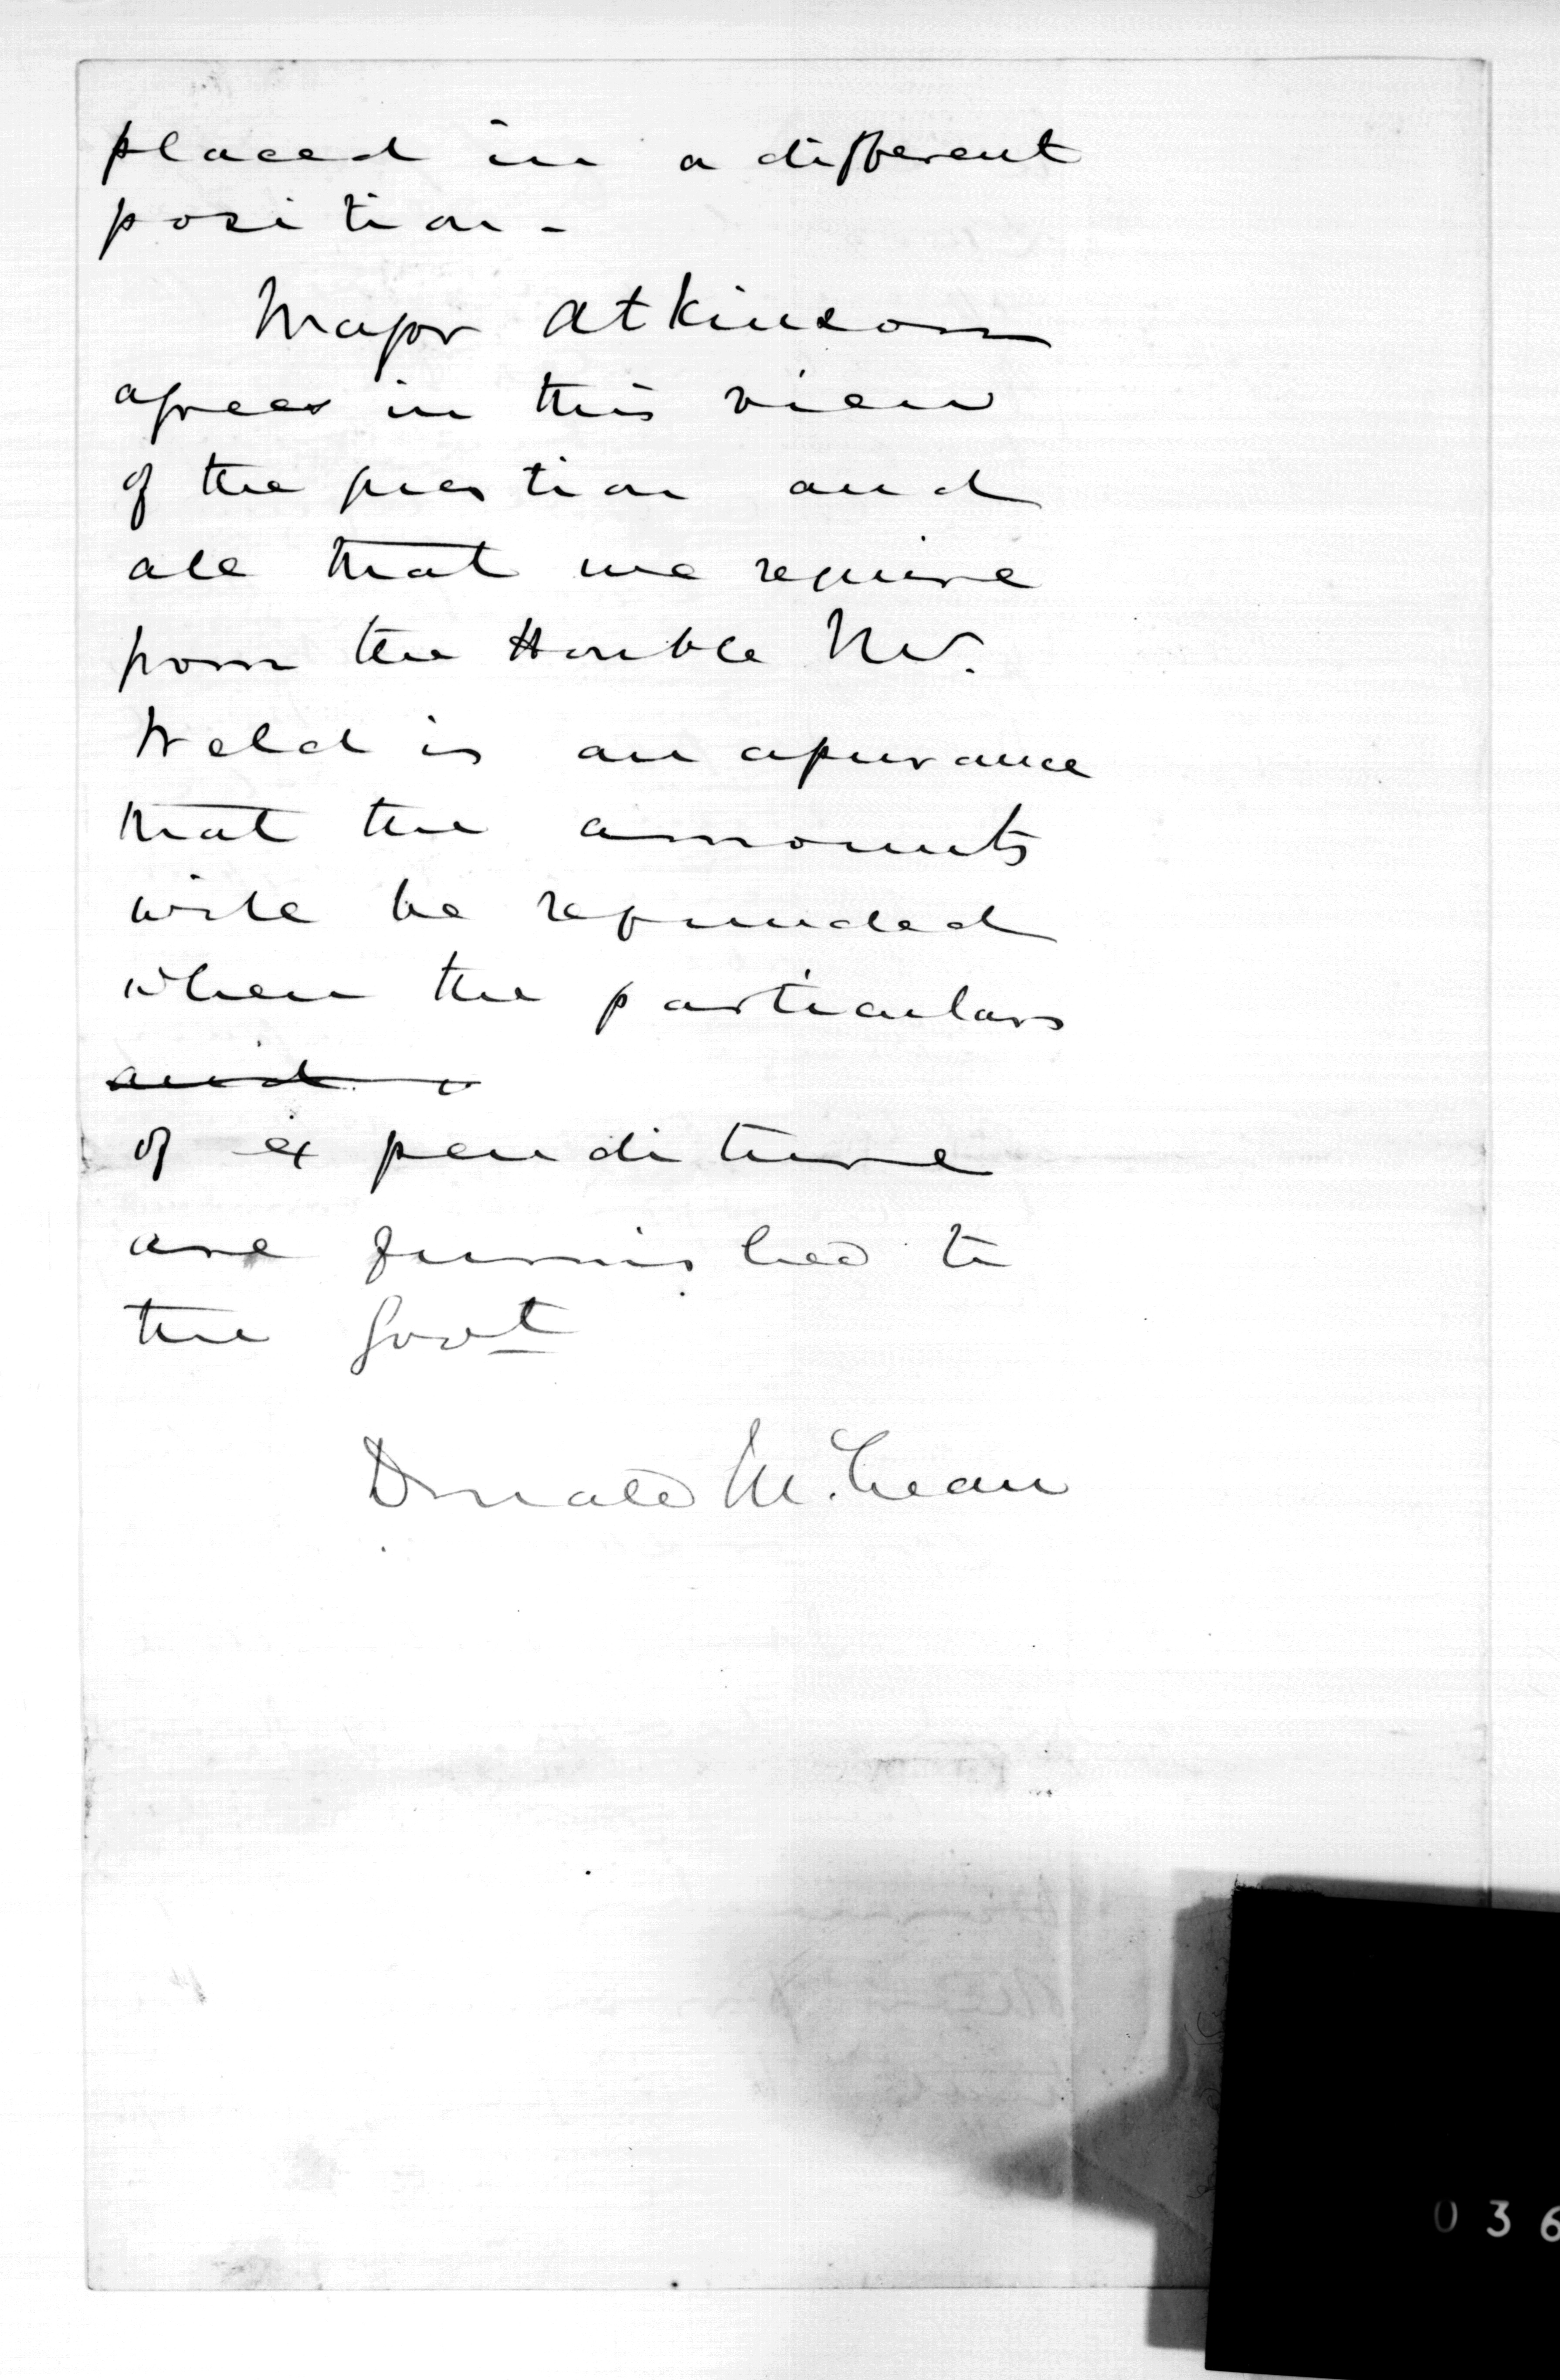 placed in a different
position -
Major Atkinson
agrees in this view
of the question and
all that we require
from the Honble Mr.
Weld is an assurance
that the amounts
will be refunded
when the particulars
and
of expenditure
are furnished to
the Govt
Donald McLean
036